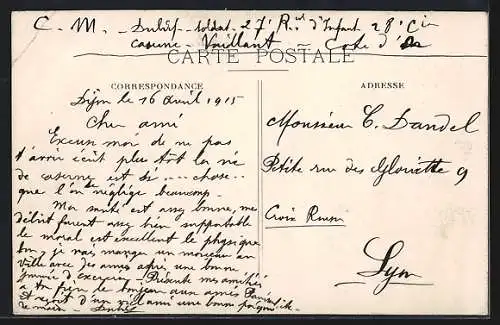 C. M. Dubœuf soldat 27e Rt d'Infant 28e Cie
caserne Vaillant Cote d'Or
CARTE POSTALE
CORRESPONDANCE
ADRESSE
Dijon le 16 avril 1915
Cher ami
Excuse moi de ne pas
t'avoir écrit plus tot la vie
de caserne est si chose
que l'on néglige beaucoup
Ma santé est assez bonne, mes
début furent assez bien supportable
le moral est excellent le physique
bon, je vais manger un morceau en
ville avec des amis après une bonne
journée d'exercice. Présente mes amitiés
a ton frère le bonjour aux amis
et reçoit d'un ami une bonne poignée
de main.
Monsieur C. Dandel
Petite rue des Gloriette 9
Croix Rousse
Lyon